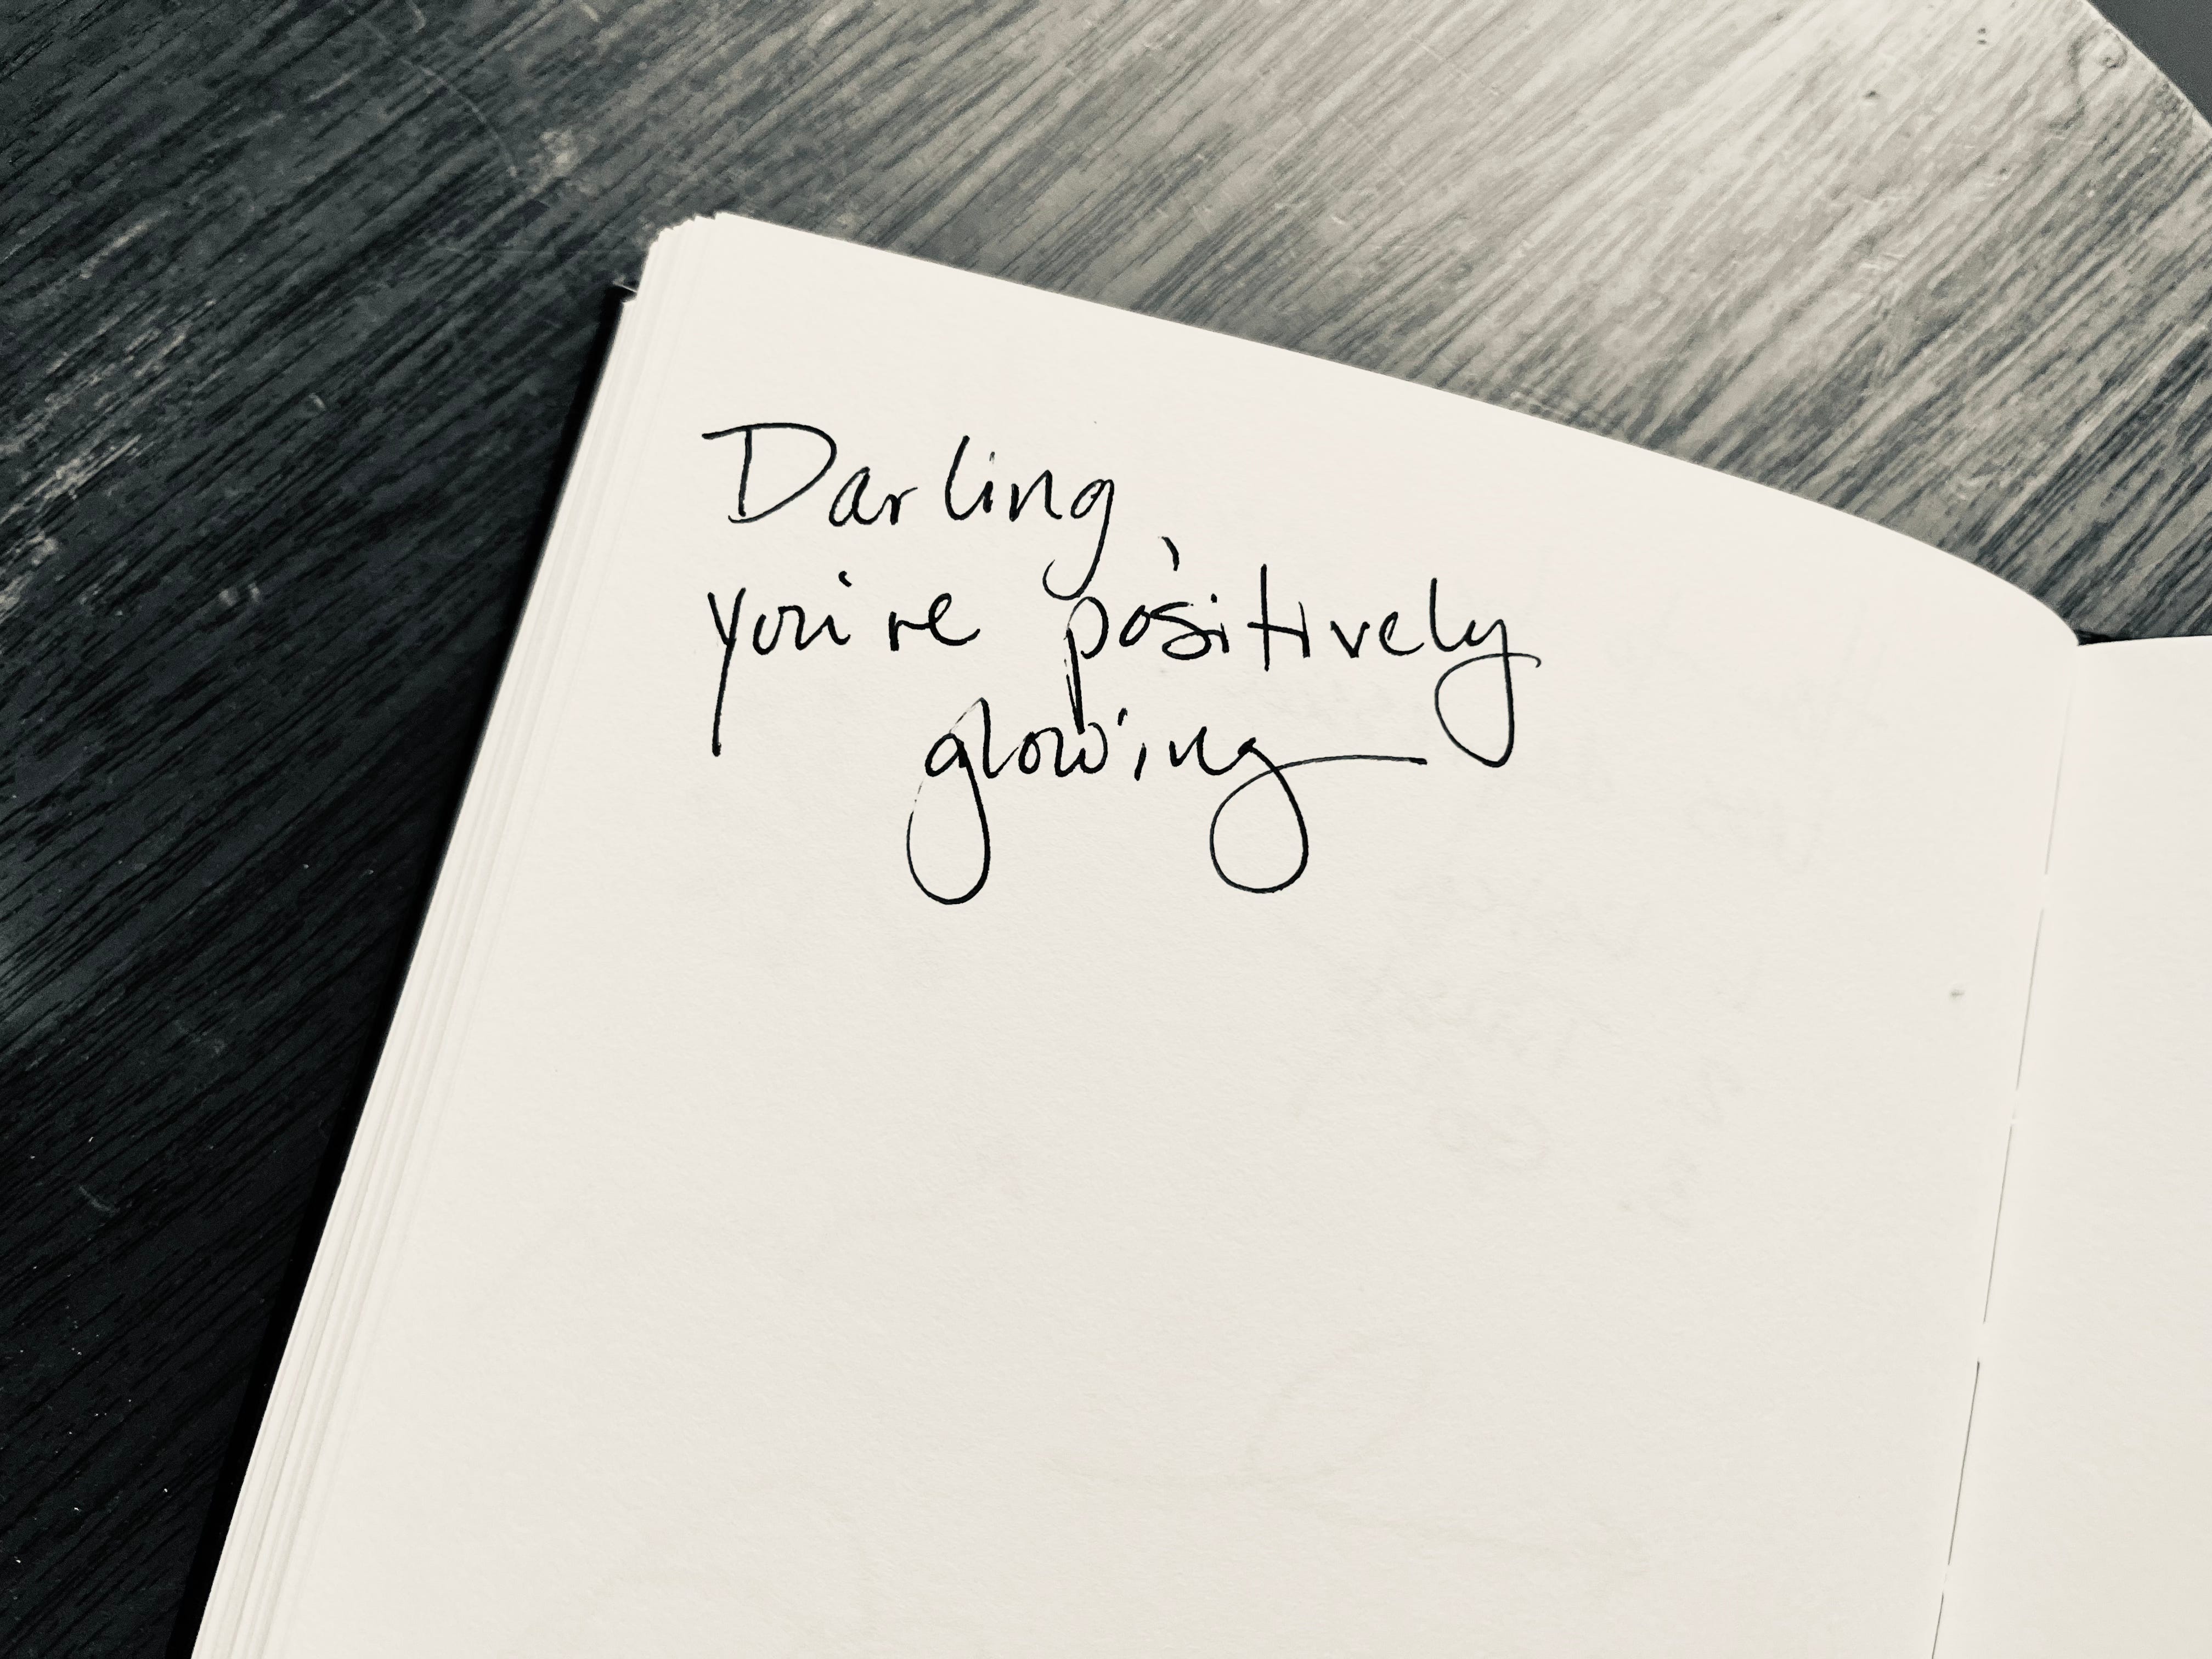 Darling,
you're positively
glowing